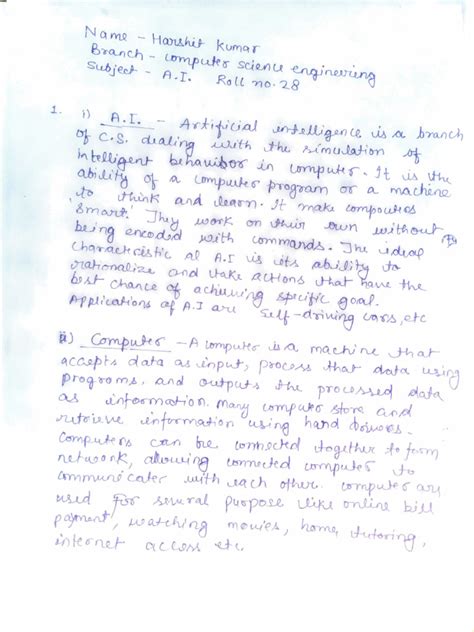 Name - Harshit Kumar
Branch - Computer science engineering
Subject - A.I. Roll no. 28
1. i) A.I. - Artificial intelligence is a branch
of C.S. dealing with the simulation of
intelligent behavibor in computer. It is the
ability of a computer program or a machine
to think and learn. It make computers
'smart'. They work on their own without
being encoded with commands. The ideal
characteristic al A.I is its ability to
rationalize and take actions that have the
best chance of achieving specific goal.
Applications of A.I are self-driving cars, etc
ii) Computer - A computer is a machine that
accepts data as input, process that data using
programs, and outputs the processed data
as information. Many computer store and
retrieve information using hard drivers.
Computers can be connected together to form
network, allowing connected computer to
communicates with each other. Computer are
used for several purpose like online bill
payment, watching movies, home tutoring,
internet access etc.